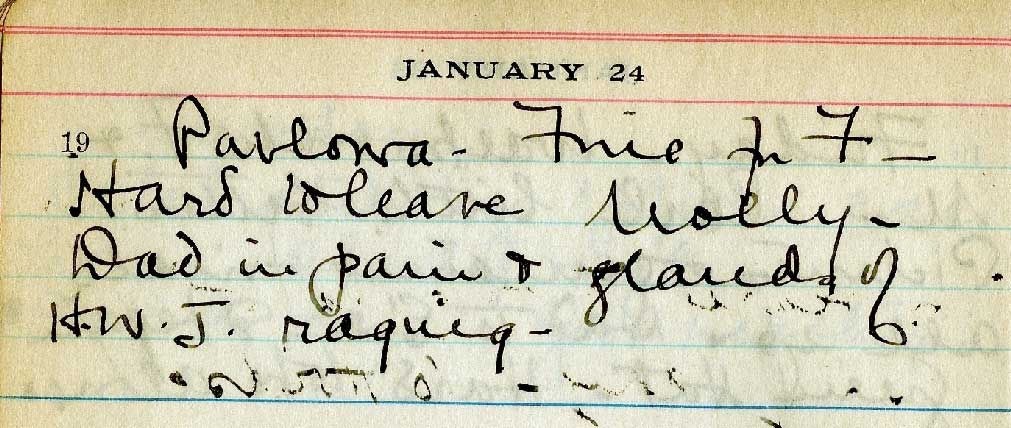 JANUARY 24
19 Pavlowa - Fine in F -
Hard to leave Molly -
Dad in pain & glands of
H.W.J. raging -